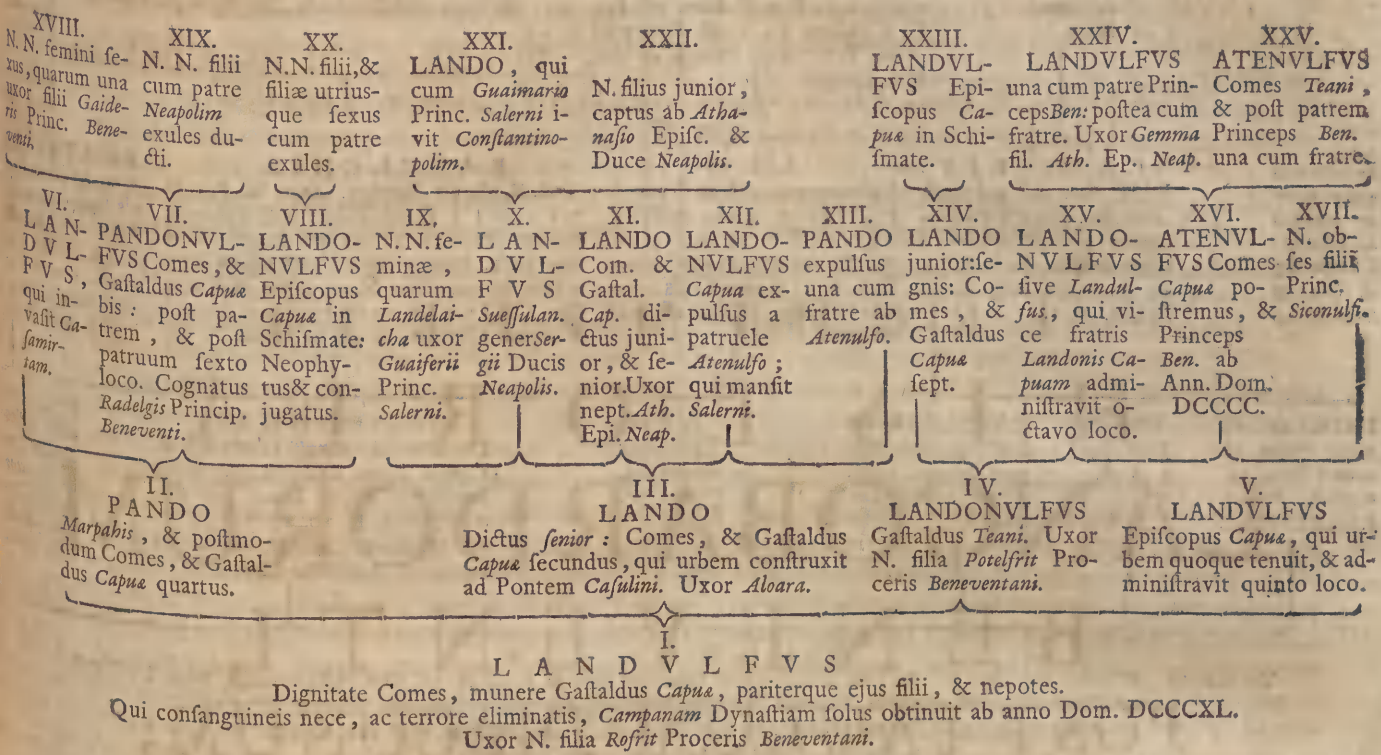 XVIII.
N. N. femini ſe-
xus, quarum una
uxor filii Gaide-
ris Princ. Bene-
venti.
XIX.
N. N. filii
cum patre
Neapolim
exules du-
cti.
XX.
N.N. filii, &
filiæ utrius-
que ſexus
cum patre
exules.
XXI.
LANDO, qui
cum Guaimario
Princ. Salerni i-
vit Conſtantino-
polim.
XXII.
N. filius junior,
captus ab Atha-
naſio Epiſc. &
Duce Neapolis.
XXIII.
LANDVL-
FVS Epi-
ſcopus Ca-
puæ in Schi-
ſmate.
XXIV.
LANDVLFVS
una cum patre Prin-
ceps Ben: poſtea cum
fratre. Uxor Gemma
fil. Ath. Ep. Neap.
XXV.
ATENVLFVS
Comes Teani,
& poſt patrem
Princeps Ben.
una cum fratre.
VI.
LAN-
DVL-
FVS,
qui in-
vaſit Ca-
ſamir-
tam.
VII.
PANDONVL-
FVS Comes, &
Gaſtaldus Capuæ
bis: poſt pa-
trem, & poſt
patruum ſexto
loco. Cognatus
Radelgis Princip.
Beneventi.
VIII.
LANDO-
NVLFVS
Epiſcopus
Capuæ in
Schiſmate:
Neophy-
tus & con-
jugatus.
IX.
N. N. fe-
minæ,
quarum
Landelai-
cha uxor
Guaiferii
Princ.
Salerni.
X.
LAN-
DVL-
FVS
Sueſſulan.
gener Ser-
gii Ducis
Neapolis.
XI.
LANDO
Com. &
Gaſtal.
Cap. di-
ctus juni-
or, & ſe-
nior. Uxor
nept. Ath.
Epi. Neap.
XII.
LANDO-
NVLFVS
Capua ex-
pulſus a
patruele
Atenulfo;
qui manſit
Salerni.
XIII.
PANDO
expulſus
una cum
fratre ab
Atenulfo.
XIV.
LANDO
junior: ſe-
gnis: Co-
mes, &
Gaſtaldus
Capuæ
ſept.
XV.
LANDO-
NVLFVS
ſive Landul-
fus, qui vi-
ce fratris
Landonis Ca-
puam admi-
niſtravit o-
ctavo loco.
XVI.
ATENVL-
FVS Comes
Capuæ po-
ſtremus, &
Princeps
Ben. ab
Ann. Dom.
DCCCC.
XVII.
N. ob-
ſes filii
Princ.
Siconulfi.
II.
PANDO
Marpahis, & poſtmo-
dum Comes, & Gaſtal-
dus Capuæ quartus.
III.
LANDO
Dictus ſenior: Comes, & Gaſtaldus
Capuæ ſecundus, qui urbem conſtruxit
ad Pontem Caſulini. Uxor Aloara.
IV.
LANDONVLFVS
Gaſtaldus Teani. Uxor
N. filia Potelfrit Pro-
ceris Beneventani.
V.
LANDVLFVS
Epiſcopus Capuæ, qui ur-
bem quoque tenuit, & ad-
miniſtravit quinto loco.
I.
LANDVLFVS
Dignitate Comes, munere Gaſtaldus Capuæ, pariterque ejus filii, & nepotes.
Qui conſanguineis nece, ac terrore eliminatis, Campanam Dynaſtiam ſolus obtinuit ab anno Dom. DCCCXL.
Uxor N. filia Rofrit Proceris Beneventani.